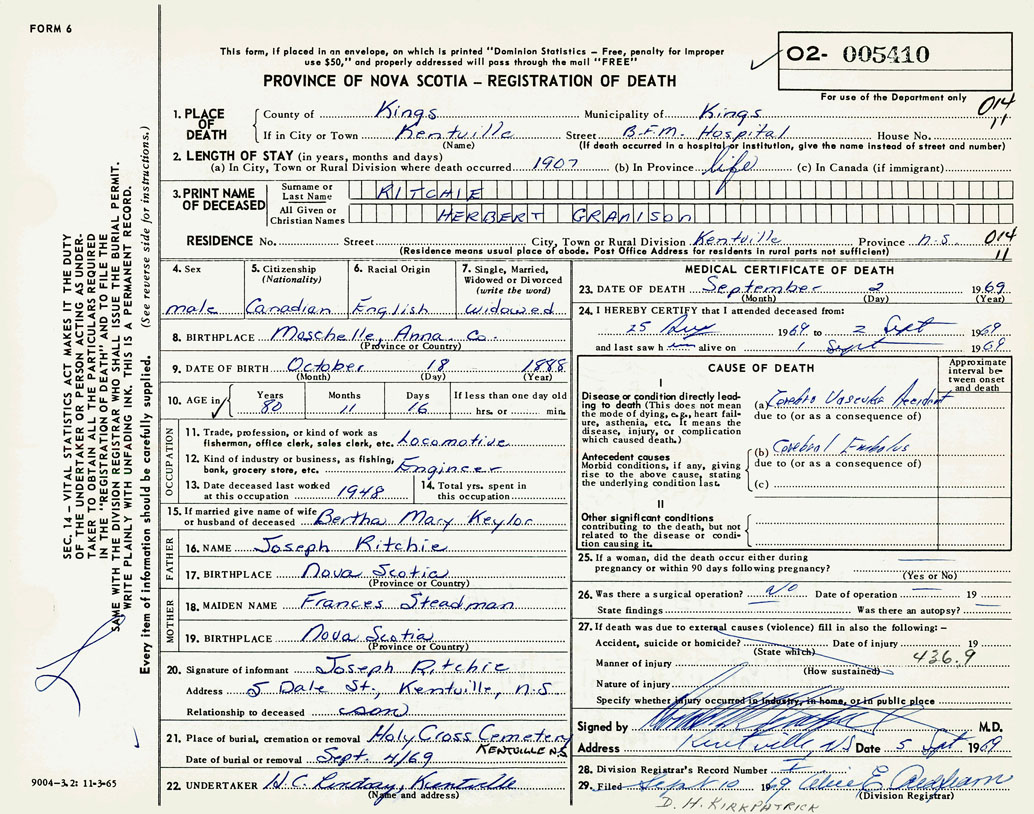 FORM 6
This form, if placed in an envelope, on which is printed "Dominion Statistics – Free, penalty for improper
use $50," and properly addressed will pass through the mail "FREE"
02- 005410
PROVINCE OF NOVA SCOTIA – REGISTRATION OF DEATH
For use of the Department only
014
11
1. PLACE OF DEATH
County of Kings Municipality of Kings
If in City or Town Kentville Street B.F.M. Hospital House No.
(Name) (If death occurred in a hospital or institution, give the name instead of street and number)
2. LENGTH OF STAY (in years, months and days)
(a) In City, Town or Rural Division where death occurred 1907 (b) In Province life (c) In Canada (if immigrant)
3. PRINT NAME OF DECEASED
Surname or Last Name RITCHIE
All Given or Christian Names HERBERT GRANISON
RESIDENCE No. Street City, Town or Rural Division Kentville Province N.S. 014
(Residence means usual place of abode. Post Office Address for residents in rural parts not sufficient) 11
4. Sex
male
5. Citizenship
(Nationality)
Canadian
6. Racial Origin
English
7. Single, Married,
Widowed or Divorced
(write the word)
Widowed
8. BIRTHPLACE Moschelle, Anna. Co.
(Province or Country)
9. DATE OF BIRTH October 18 1888
(Month) (Day) (Year)
10. AGE in Years Months Days If less than one day old
80 11 16 hrs. or min.
OCCUPATION
11. Trade, profession, or kind of work as
fisherman, office clerk, sales clerk, etc. Locomotive
12. Kind of industry or business, as fishing,
bank, grocery store, etc. Engineer
13. Date deceased last worked
at this occupation 1948
14. Total yrs. spent in
this occupation
15. If married give name of wife
or husband of deceased Bertha Mary Keylor
FATHER
16. NAME Joseph Ritchie
17. BIRTHPLACE Nova Scotia
(Province or Country)
MOTHER
18. MAIDEN NAME Frances Steadman
19. BIRTHPLACE Nova Scotia
(Province or Country)
20. Signature of informant Joseph Ritchie
Address 5 Dale St., Kentville, N.S
Relationship to deceased son
21. Place of burial, cremation or removal Holy Cross Cemetery
KENTVILLE N.S
Date of burial or removal Sept. 4/69
22. UNDERTAKER W.C. Lindsay, Kentville
(Name and address)
MEDICAL CERTIFICATE OF DEATH
23. DATE OF DEATH September 2 1969
(Month) (Day) (Year)
24. I HEREBY CERTIFY that I attended deceased from:
25 Aug 1969 to 2 Sept 1969
and last saw him alive on 1 Sept 1969
CAUSE OF DEATH
Approximate
interval be-
tween onset
and death
I
Disease or condition directly lead-
ing to death (This does not mean
mode of dying, e.g., heart fail-
ure, asthenia, etc. It means the
disease, injury, or complication
which caused death.)
(a) Cerebro Vascular Accident
due to (or as a consequence of)
Antecedent causes
Morbid conditions, if any, giving
rise to the above cause, stating
the underlying condition last.
(b) Cerebral Embolus
due to (or as a consequence of)
(c)
II
Other significant conditions
contributing to the death, but not
related to the disease or condi-
tion causing it.
25. If a woman, did the death occur either during
pregnancy or within 90 days following pregnancy?
(Yes or No)
26. Was there a surgical operation? No Date of operation 19
State findings Was there an autopsy?
27. If death was due to external causes (violence) fill in also the following: –
Accident, suicide or homicide? Date of injury 19
(State which) 436.9
Manner of injury
(How sustained)
Nature of injury
Specify whether injury occurred in industry, in home, or in public place
Signed by M.D.
Address Kentville, NS Date 5 Sept 1969
28. Division Registrar's Record Number
29. Filed Sept 10 1969
(Division Registrar)
D. H. KIRKPATRICK
SEC. 14 – VITAL STATISTICS ACT MAKES IT THE DUTY
OF THE UNDERTAKER OR PERSON ACTING AS UNDER-
TAKER TO OBTAIN ALL THE PARTICULARS REQUIRED
IN THE "REGISTRATION OF DEATH" AND TO FILE THE
SAME WITH THE DIVISION REGISTRAR WHO SHALL ISSUE THE BURIAL PERMIT.
WRITE PLAINLY WITH UNFADING INK. THIS IS A PERMANENT RECORD.
Every item of information should be carefully supplied. (See reverse side for instructions.)
9004–3.2: 11-3-65